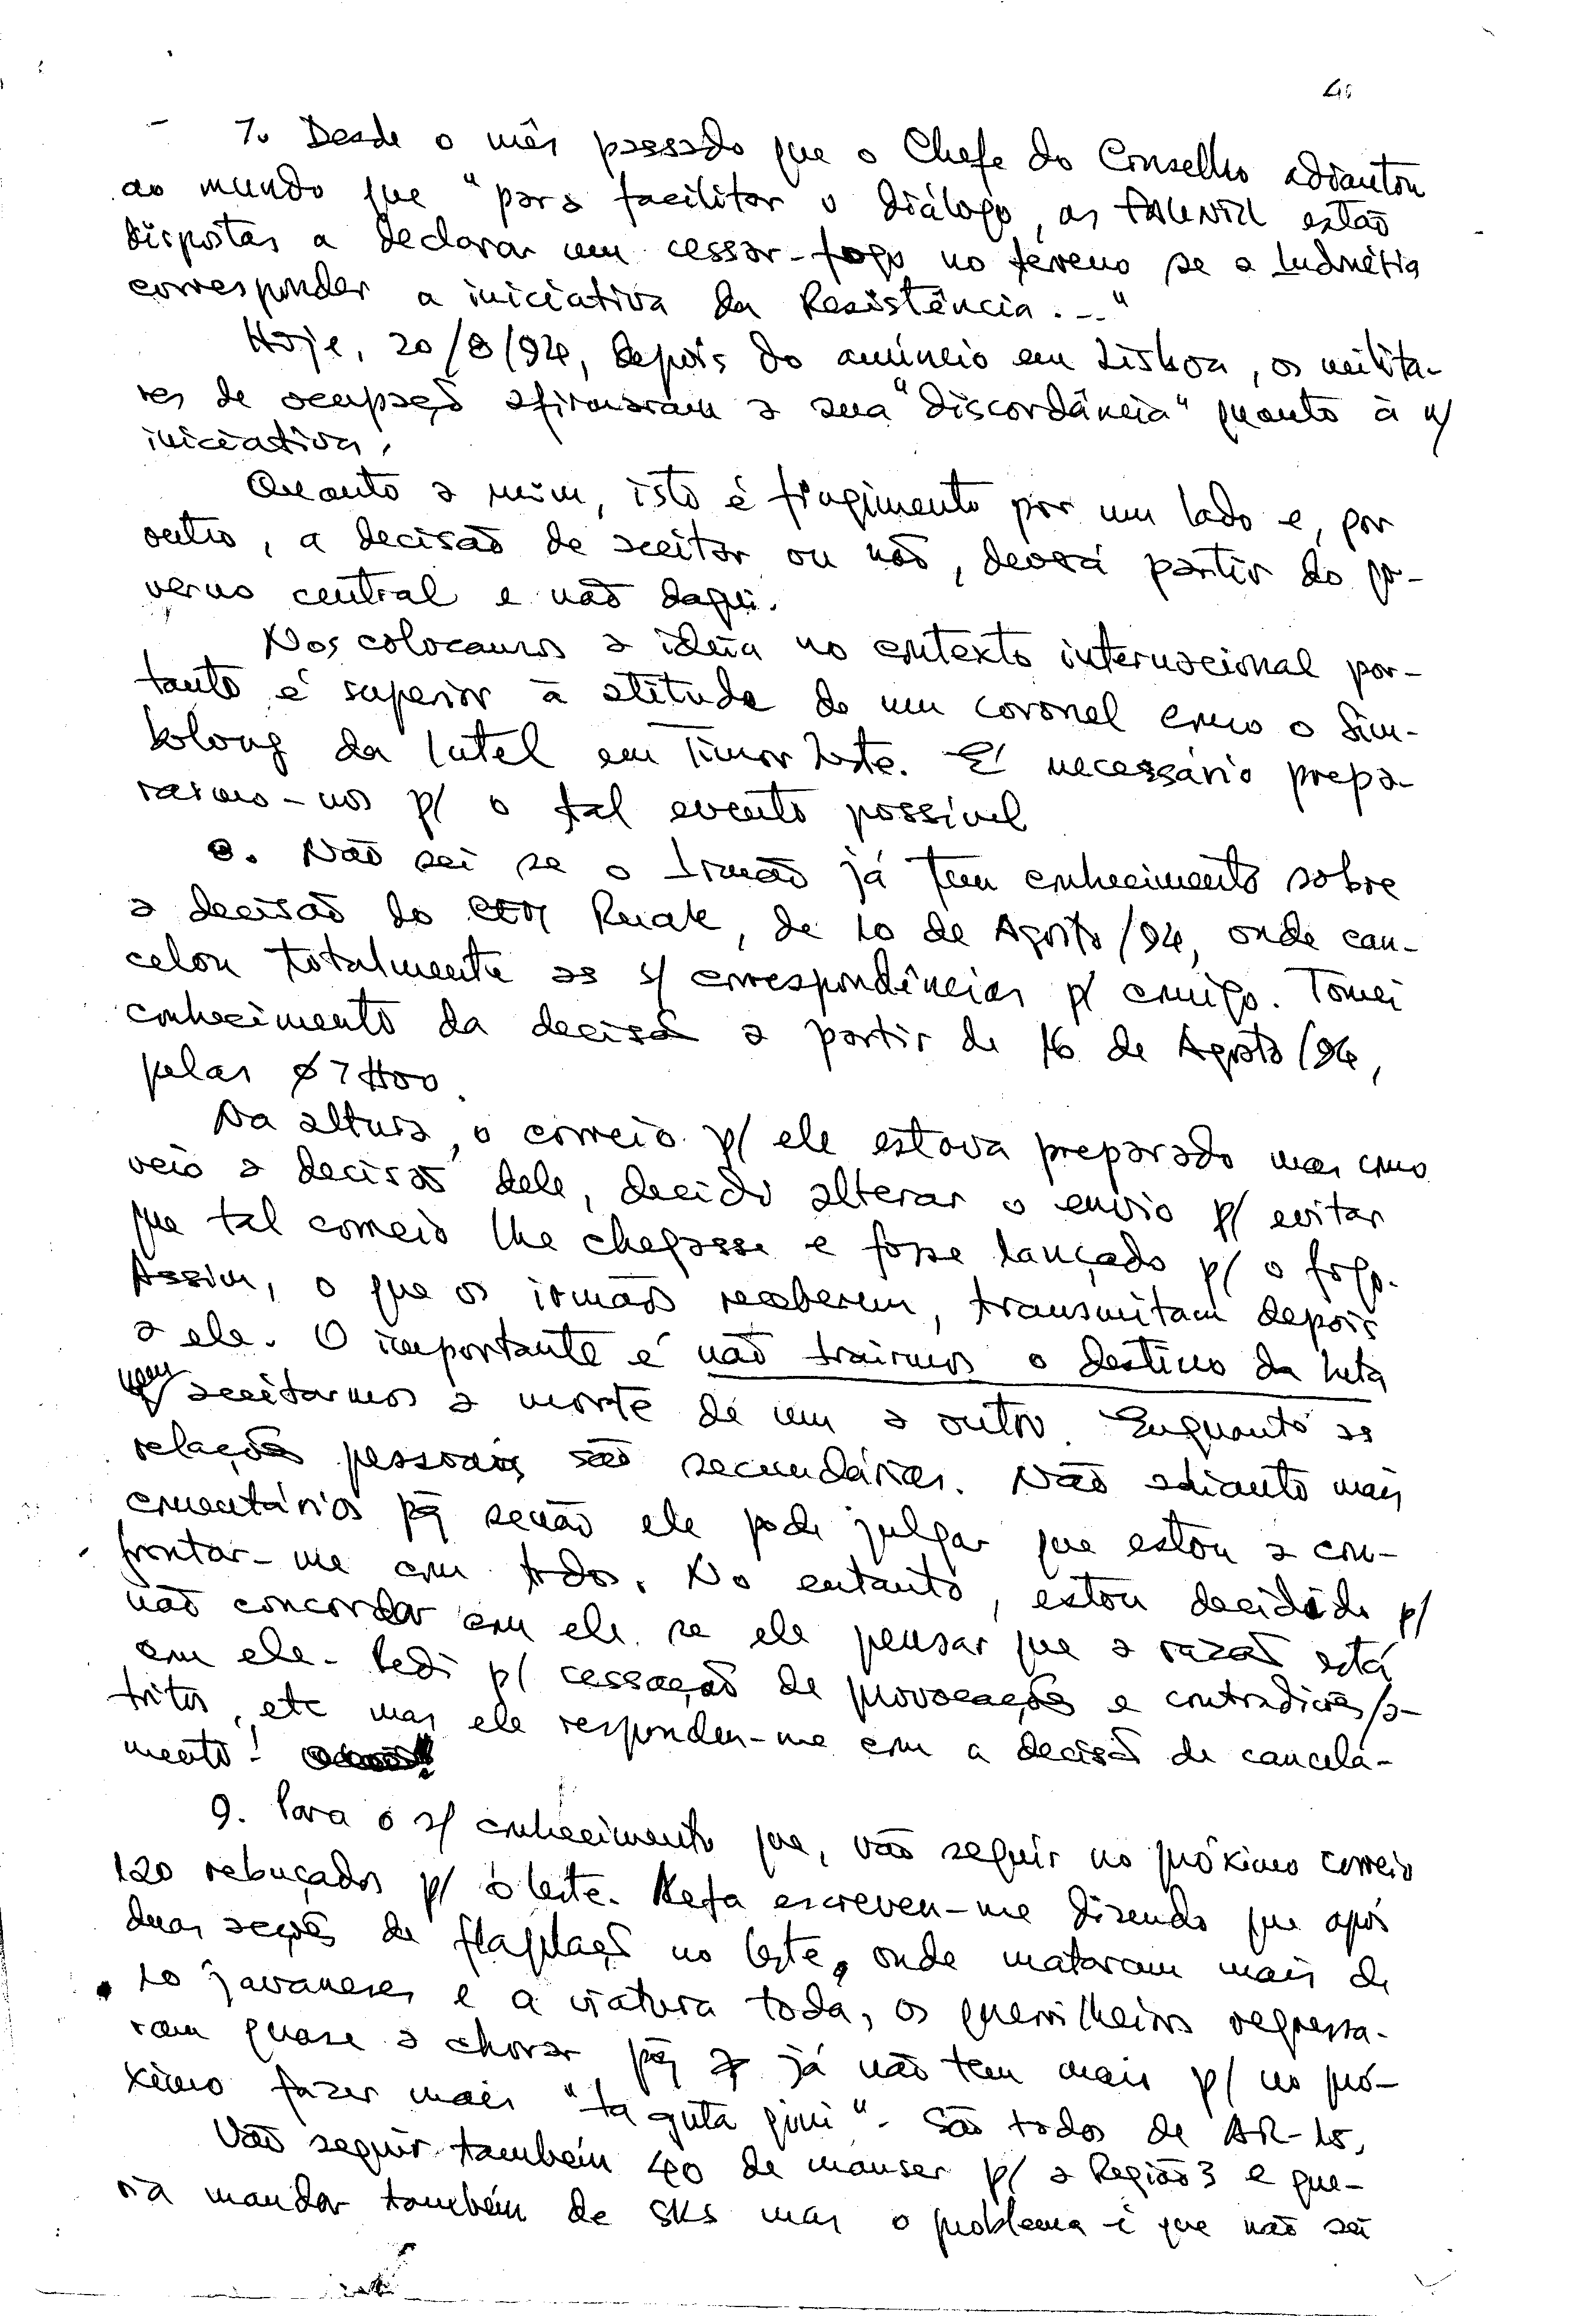 4.
7. Desde o mês passado que o Chefe do Conselho adiantou
ao mundo que "para facilitar o diálogo, as FALINTIL estão
dispostas a declarar um cessar-fogo no terreno se a Indonésia
corresponder a iniciativa da Resistência..."
Hoje, 20/8/94, depois do anúncio em Lisboa, os milita-
res de ocupação afirmaram a sua "discordância" quanto à n/
iniciativa.
Quanto a mim, isto é fingimento por um lado e, por
outro, a decisão de aceitar ou não, deverá partir do go-
verno central e não daqui.
Nos colocamos a ideia no contexto internacional por-
tanto é superior à atitude de um coronel como o Sim-
bolong da Intel em Timor Leste. É necessário prepa-
rarmo-nos p/ o tal evento possível
8. Não sei se o Irmão já tem conhecimento sobre
a decisão do CEM Ruak, de 10 de Agosto/94, onde can-
celou totalmente as s/ correspondências p/ comigo. Tomei
conhecimento da decisão a partir de 16 de Agosto/94,
pelas 07H00.
Na altura, o correio p/ ele estava preparado mas como
veio a decisão dele, decidi alterar o envio p/ evitar
que tal correio lhe chegasse e fosse lançado p/ o fogo.
Assim, o que os irmãos receberem, transmitam depois
a ele. O importante é não trairmos o destino da luta
nem aceitarmos a morte de um a outro. Enquanto as
relações pessoais são secundárias. Não adianto mais
comentários pq senão ele pode julgar que estou a con-
frontar-me com todos. No entanto, estou decidido p/
não concordar com ele se ele pensar que a razão está
com ele. Pedi p/ cessação de provocações e contradições/a-
tritos, etc mas ele respondeu-me com a decisão de cancela-
mento!
9. Para o s/ conhecimento que, vão seguir no próximo correio
120 rebuçados p/ o leste. Kefa escreveu-me dizendo que após
duas acções de flagelação no leste, onde mataram mais de
10 javaneses e a viatura toda, os guerrilheiros regressa-
ram quase a chorar pq já não tem mais p/ no pró-
ximo fazer mais "ta guta gini". São todos de AR-15.
Vão seguir também 40 de mauser p/ a Região 3 e que-
ria mandar também de SKS mas o problema é que não sei